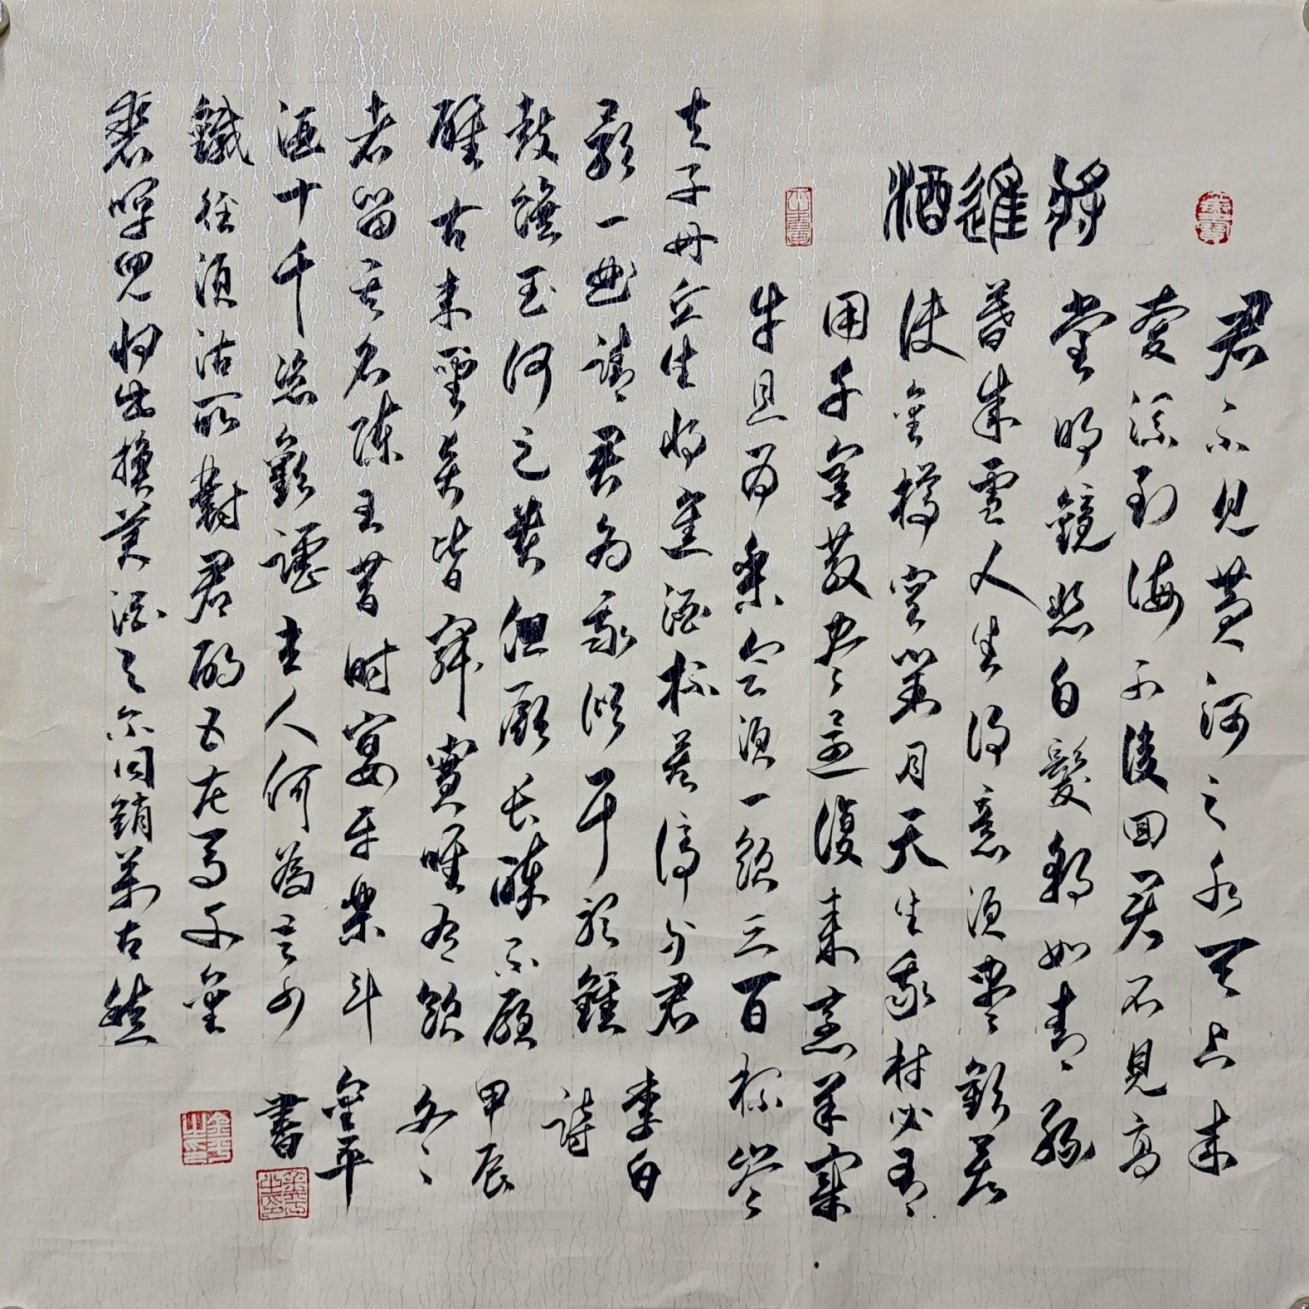 將進酒
君不見黃河之水天上来
奔流到海不復回君不見高
堂明鏡悲白髮朝如青絲
暮成雪人生得意須盡歡莫
使金樽空對月天生我材必有
用千金散盡還復来烹羊宰
牛且為樂會須一飲三百杯岑
夫子丹丘生將進酒杯莫停与君
歌一曲請君為我傾耳聽鐘
鼓饌玉何足貴但願長醉不願
醒古来聖賢皆寂寞唯有飲
者留其名陳王昔時宴平樂斗
酒十千恣歡謔主人何為言少
錢徑須沽取對君酌五花馬千金
裘呼兒將出換美酒与尔同銷萬古愁
李白
詩
甲辰
冬
金平
書